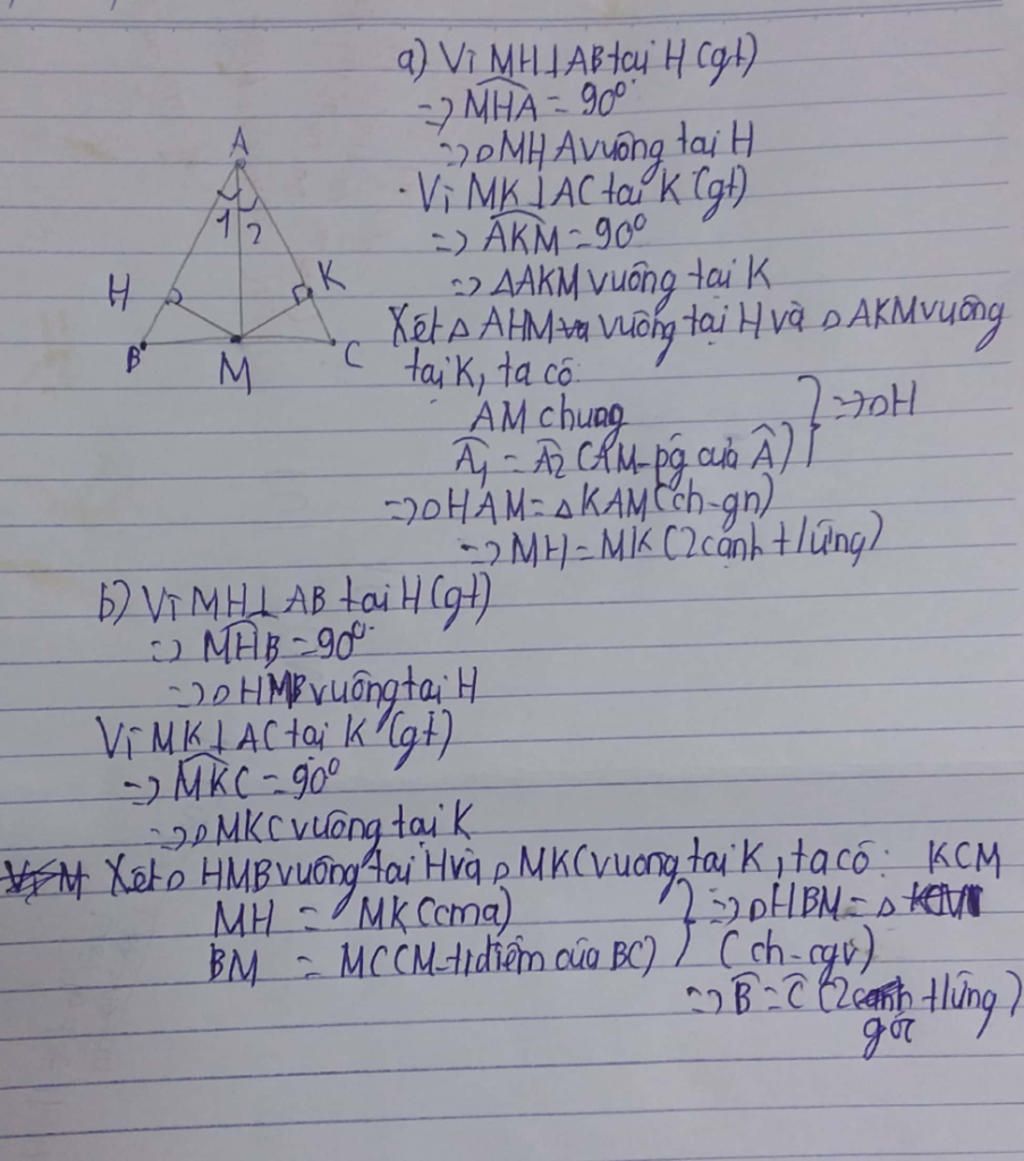 a) Vì MH⊥AB tại H (gt)
=> MHA = 90°
=> △MHA vuông tại H
. Vì MK⊥AC tại K (gt)
=> AKM = 90°
=> △AKM vuông tại K
Xét △ AHM vuông tại H và △ AKM vuông
tại K, ta có:
AM chung
} => △H
A1 = A2 (AM-pg của A)
=> △HAM = △KAM (ch-gn)
=> MH = MK (2 cạnh t/ứng)
A
1 2
H
K
B
M
C
b) Vì MH⊥AB tại H (gt)
=> MHB = 90°
=> △HMB vuông tại H
Vì MK⊥AC tại K (gt)
=> MKC = 90°
=> △MKC vuông tại K
Xét △ HMB vuông tại H và △ MKC vuong tại K, ta có: KCM
MH = MK (cma) } => △HBM = △
BM = MC (M-tr điểm của BC) (ch-cgv)
=> B = C (2 t/ứng)
góc